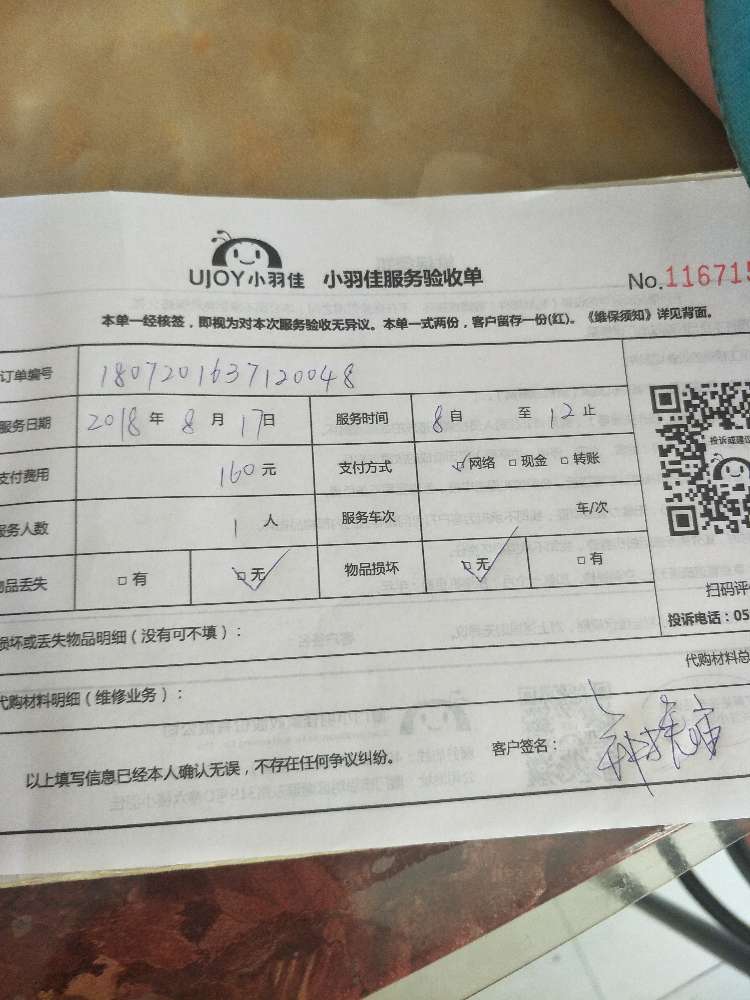 UJOY小羽佳 小羽佳服务验收单 No.116715
本单一经核签，即视为对本次服务验收无异议。本单一式两份，客户留存一份(红)。《维保须知》详见背面。
订单编号 1807201637120048
服务日期 2018年 8月 17日 服务时间 8自 至12止
支付费用 160元 支付方式 网络 现金 转账
服务人数 1人 服务车次 车/次
物品丢失 有 无 物品损坏 无 有
投诉或建议
扫码评
投诉电话：05
损坏或丢失物品明细（没有可不填）：
代购材料总
代购材料明细（维修业务）：
以上填写信息已经本人确认无误，不存在任何争议纠纷。 客户签名：